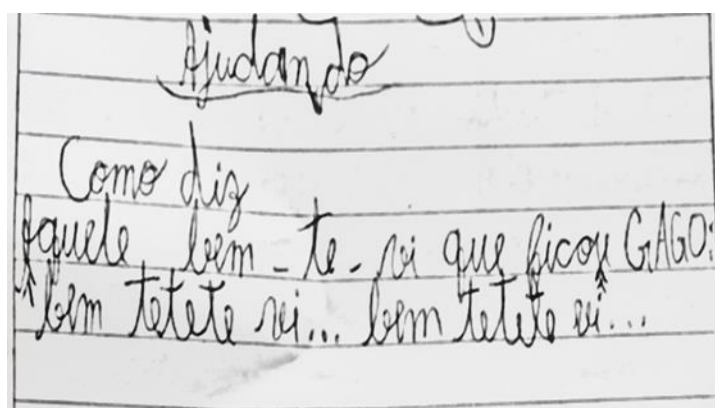 Ajudando
Como diz
aquele bem-te-vi que ficou GAGO:
bem tetete vi... bem tetete vi...